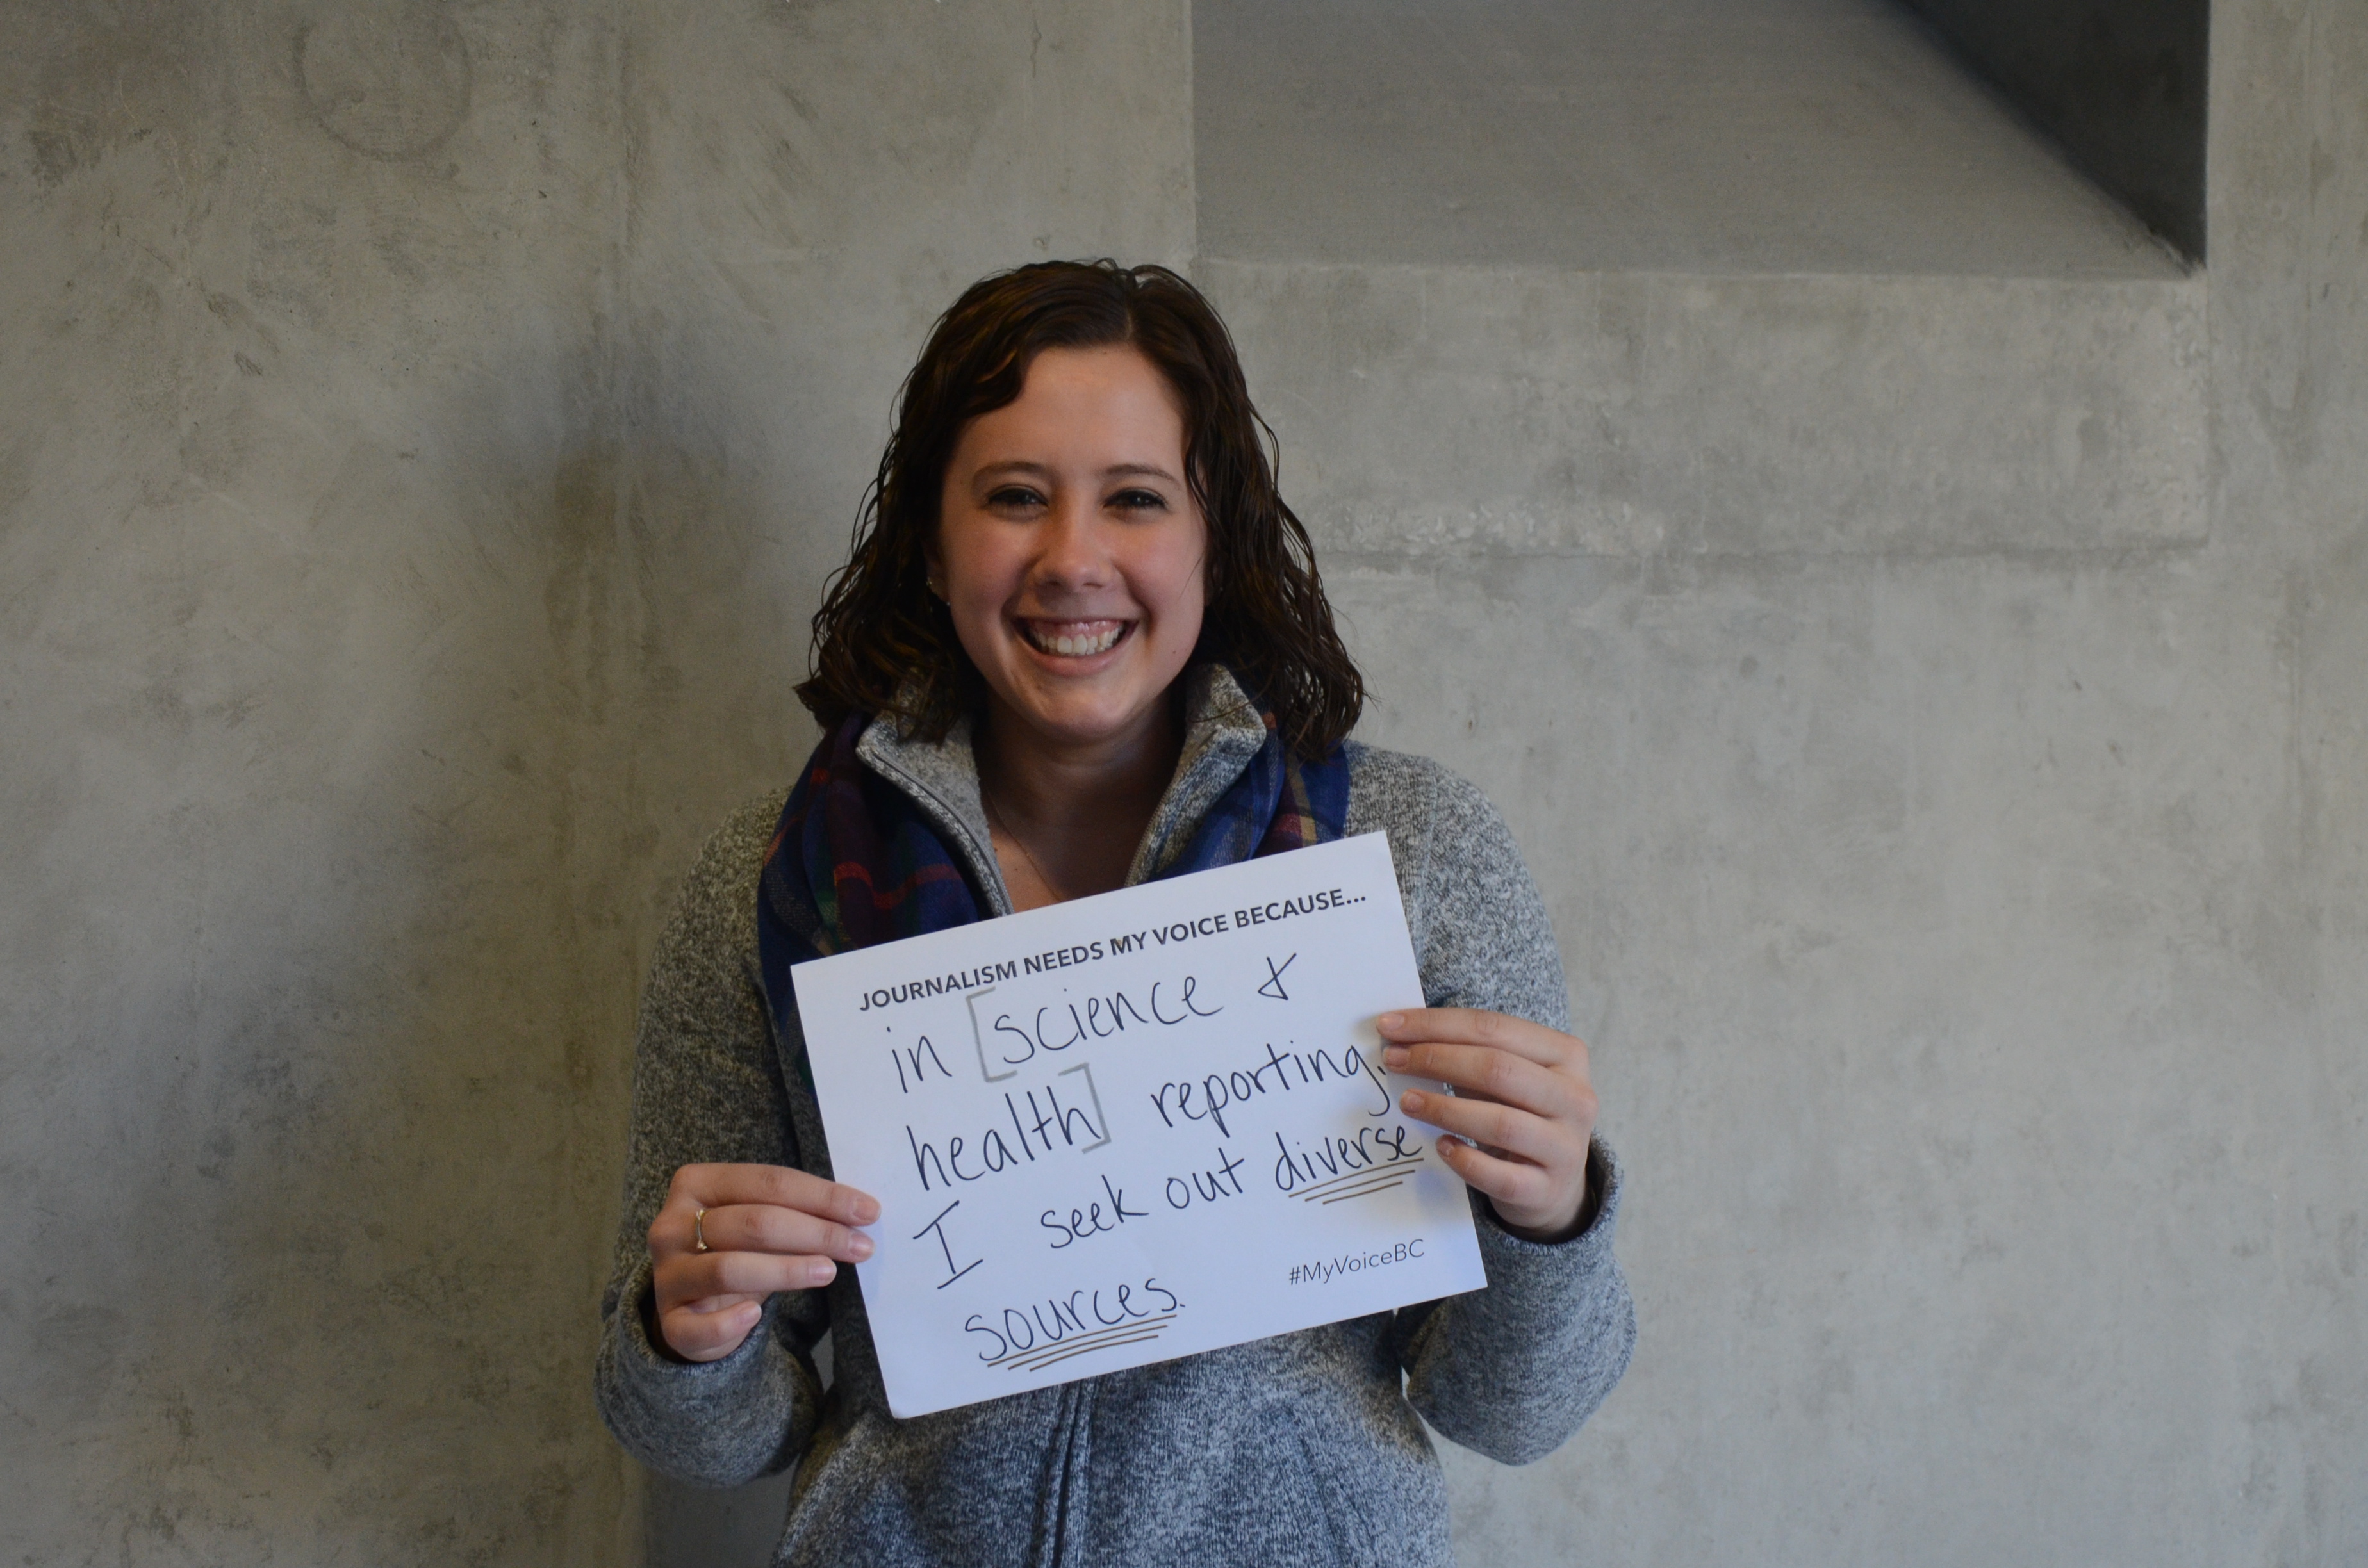 JOURNALISM NEEDS MY VOICE BECAUSE...
in [science &
health] reporting,
I seek out diverse
sources.
#MyVoiceBC